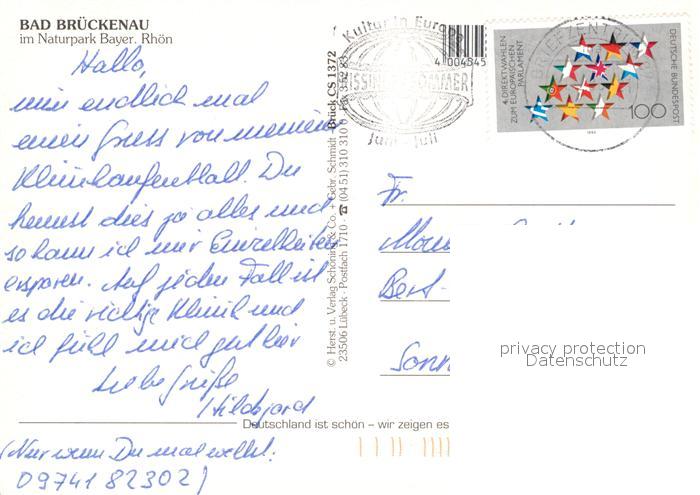 BAD BRÜCKENAU
im Naturpark Bayer. Rhön
Hallo,
nun endlich mal
einen Gruss von meinem
Klinikaufenthalt. Du
kennst dies ja alles und
so kann ich mir Einzelheiten
ersparen. Auf jeden Fall ist
es die richtige Klinik und
ich fühl mich gut hier
Liebe Grüße
Hildegard
(Nur wenn Du mal willst:
09741 82302)
© Herst. u. Verlag Schöning & Co. + Gebr. Schmidt · Brück CS 1372
23506 Lübeck · Postfach 1710 · ☎ (04 51) 310 310
Deutschland ist schön – wir zeigen es
Kultur in Europa
Juni - Juli
4 004545
4. DIREKTWAHLEN
ZUM EUROPÄISCHEN
PARLAMENT
DEUTSCHE BUNDESPOST
100
BRIEFZENTRUM
Fr.
privacy protection
Datenschutz